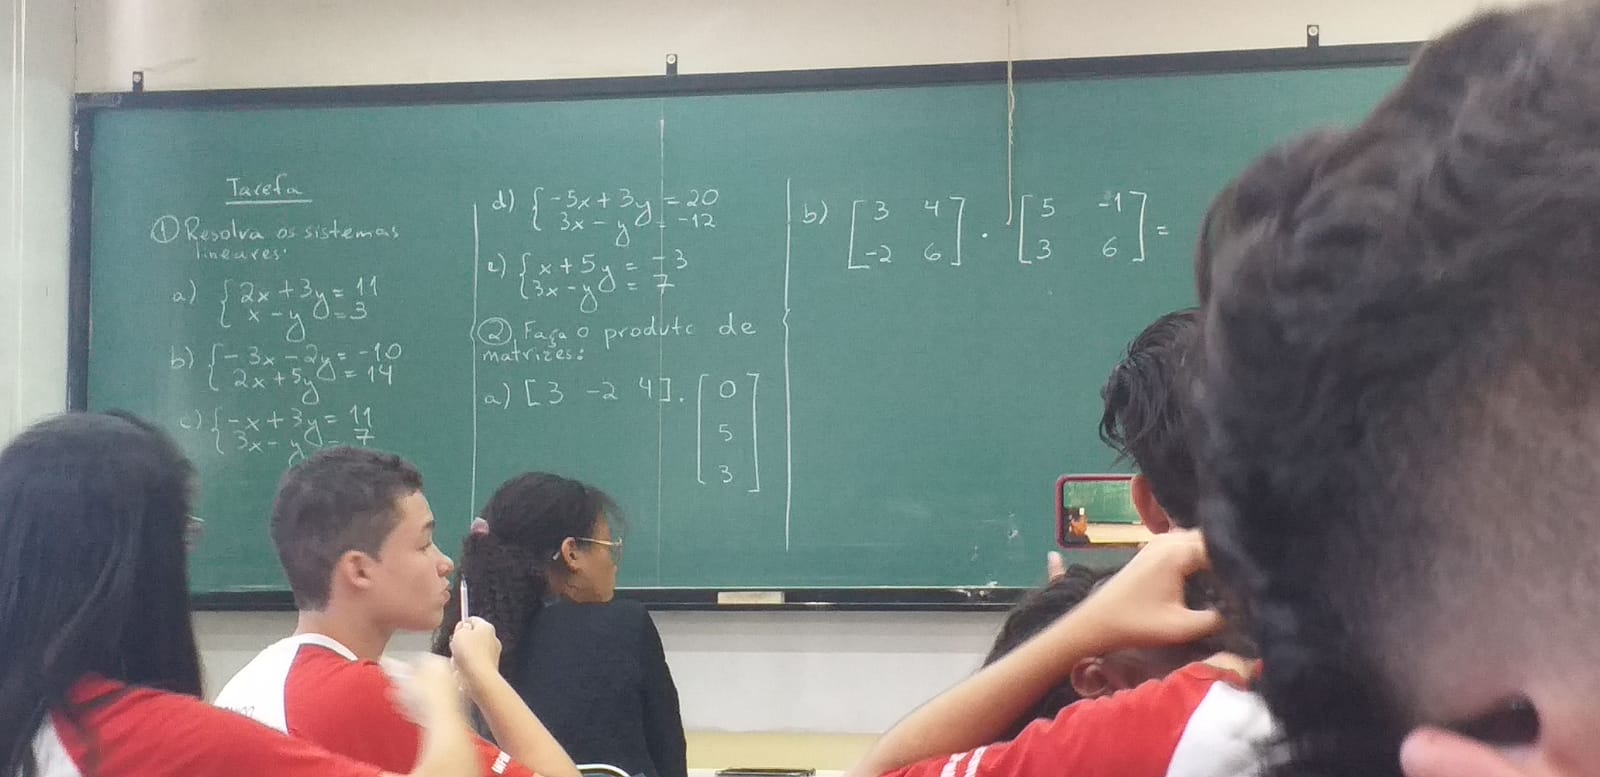 Tarefa
① Resolva os sistemas
lineares:
a) { 2x + 3y = 11
x - y = 3
b) { -3x - 2y = -10
2x + 5y = 14
c) { -x + 3y = 11
3x - y = 7
d) { -5x + 3y = 20
3x - y = -12
e) { x + 5y = -3
3x - y = 7
② Faça o produto de
matrizes:
a) [ 3 -2 4 ] . [ 0
5
3 ]
b) [ 3 4 ] . [ 5 -1 ] =
[ -2 6 ] [ 3 6 ]